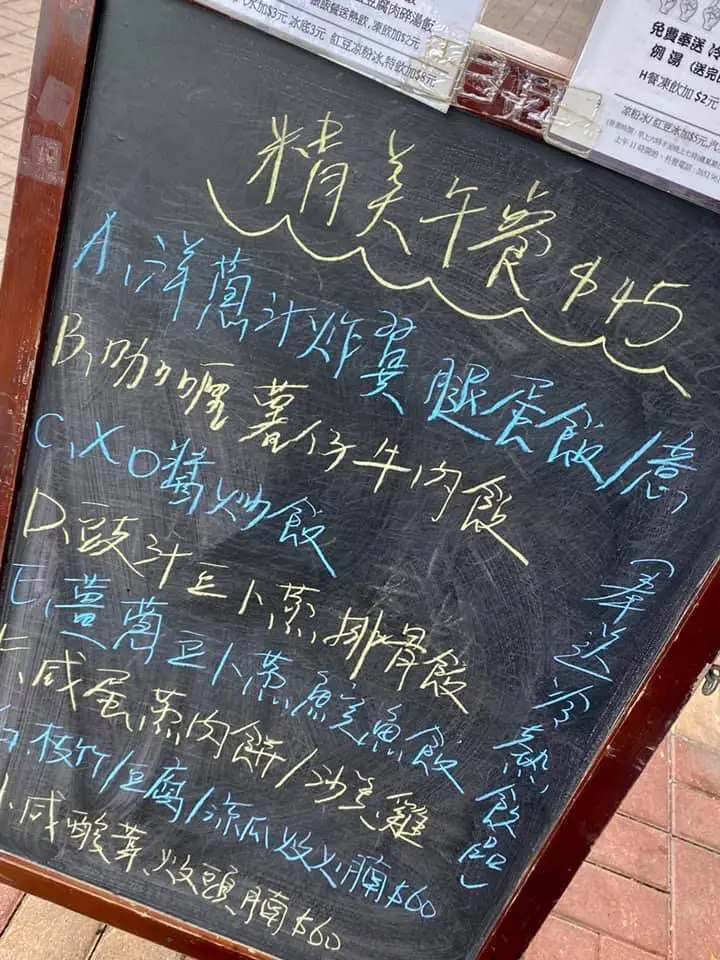 腐肉碎湯飯
跟餐送熱飲，凍飲加$2元
加$3元 冰底3元 紅豆涼粉冰，特飲加$8元
免費奉送 冷
例湯 (送完
H餐凍飲加 $2元
涼粉冰/紅豆冰加$5元，汽
精美午餐 $45
A,洋蔥汁炸翼腿蛋飯/意
B,咖喱薯仔牛肉飯
C,XO醬炒飯
D,豉汁豆卜蒸排骨飯
E,薑蔥豆卜蒸鯇魚飯
F,咸蛋蒸肉餅/沙薑雞
枝竹/豆腐/涼瓜炆火腩$60
咸酸菜炆頭腩$60
(奉送冷熱飲品)